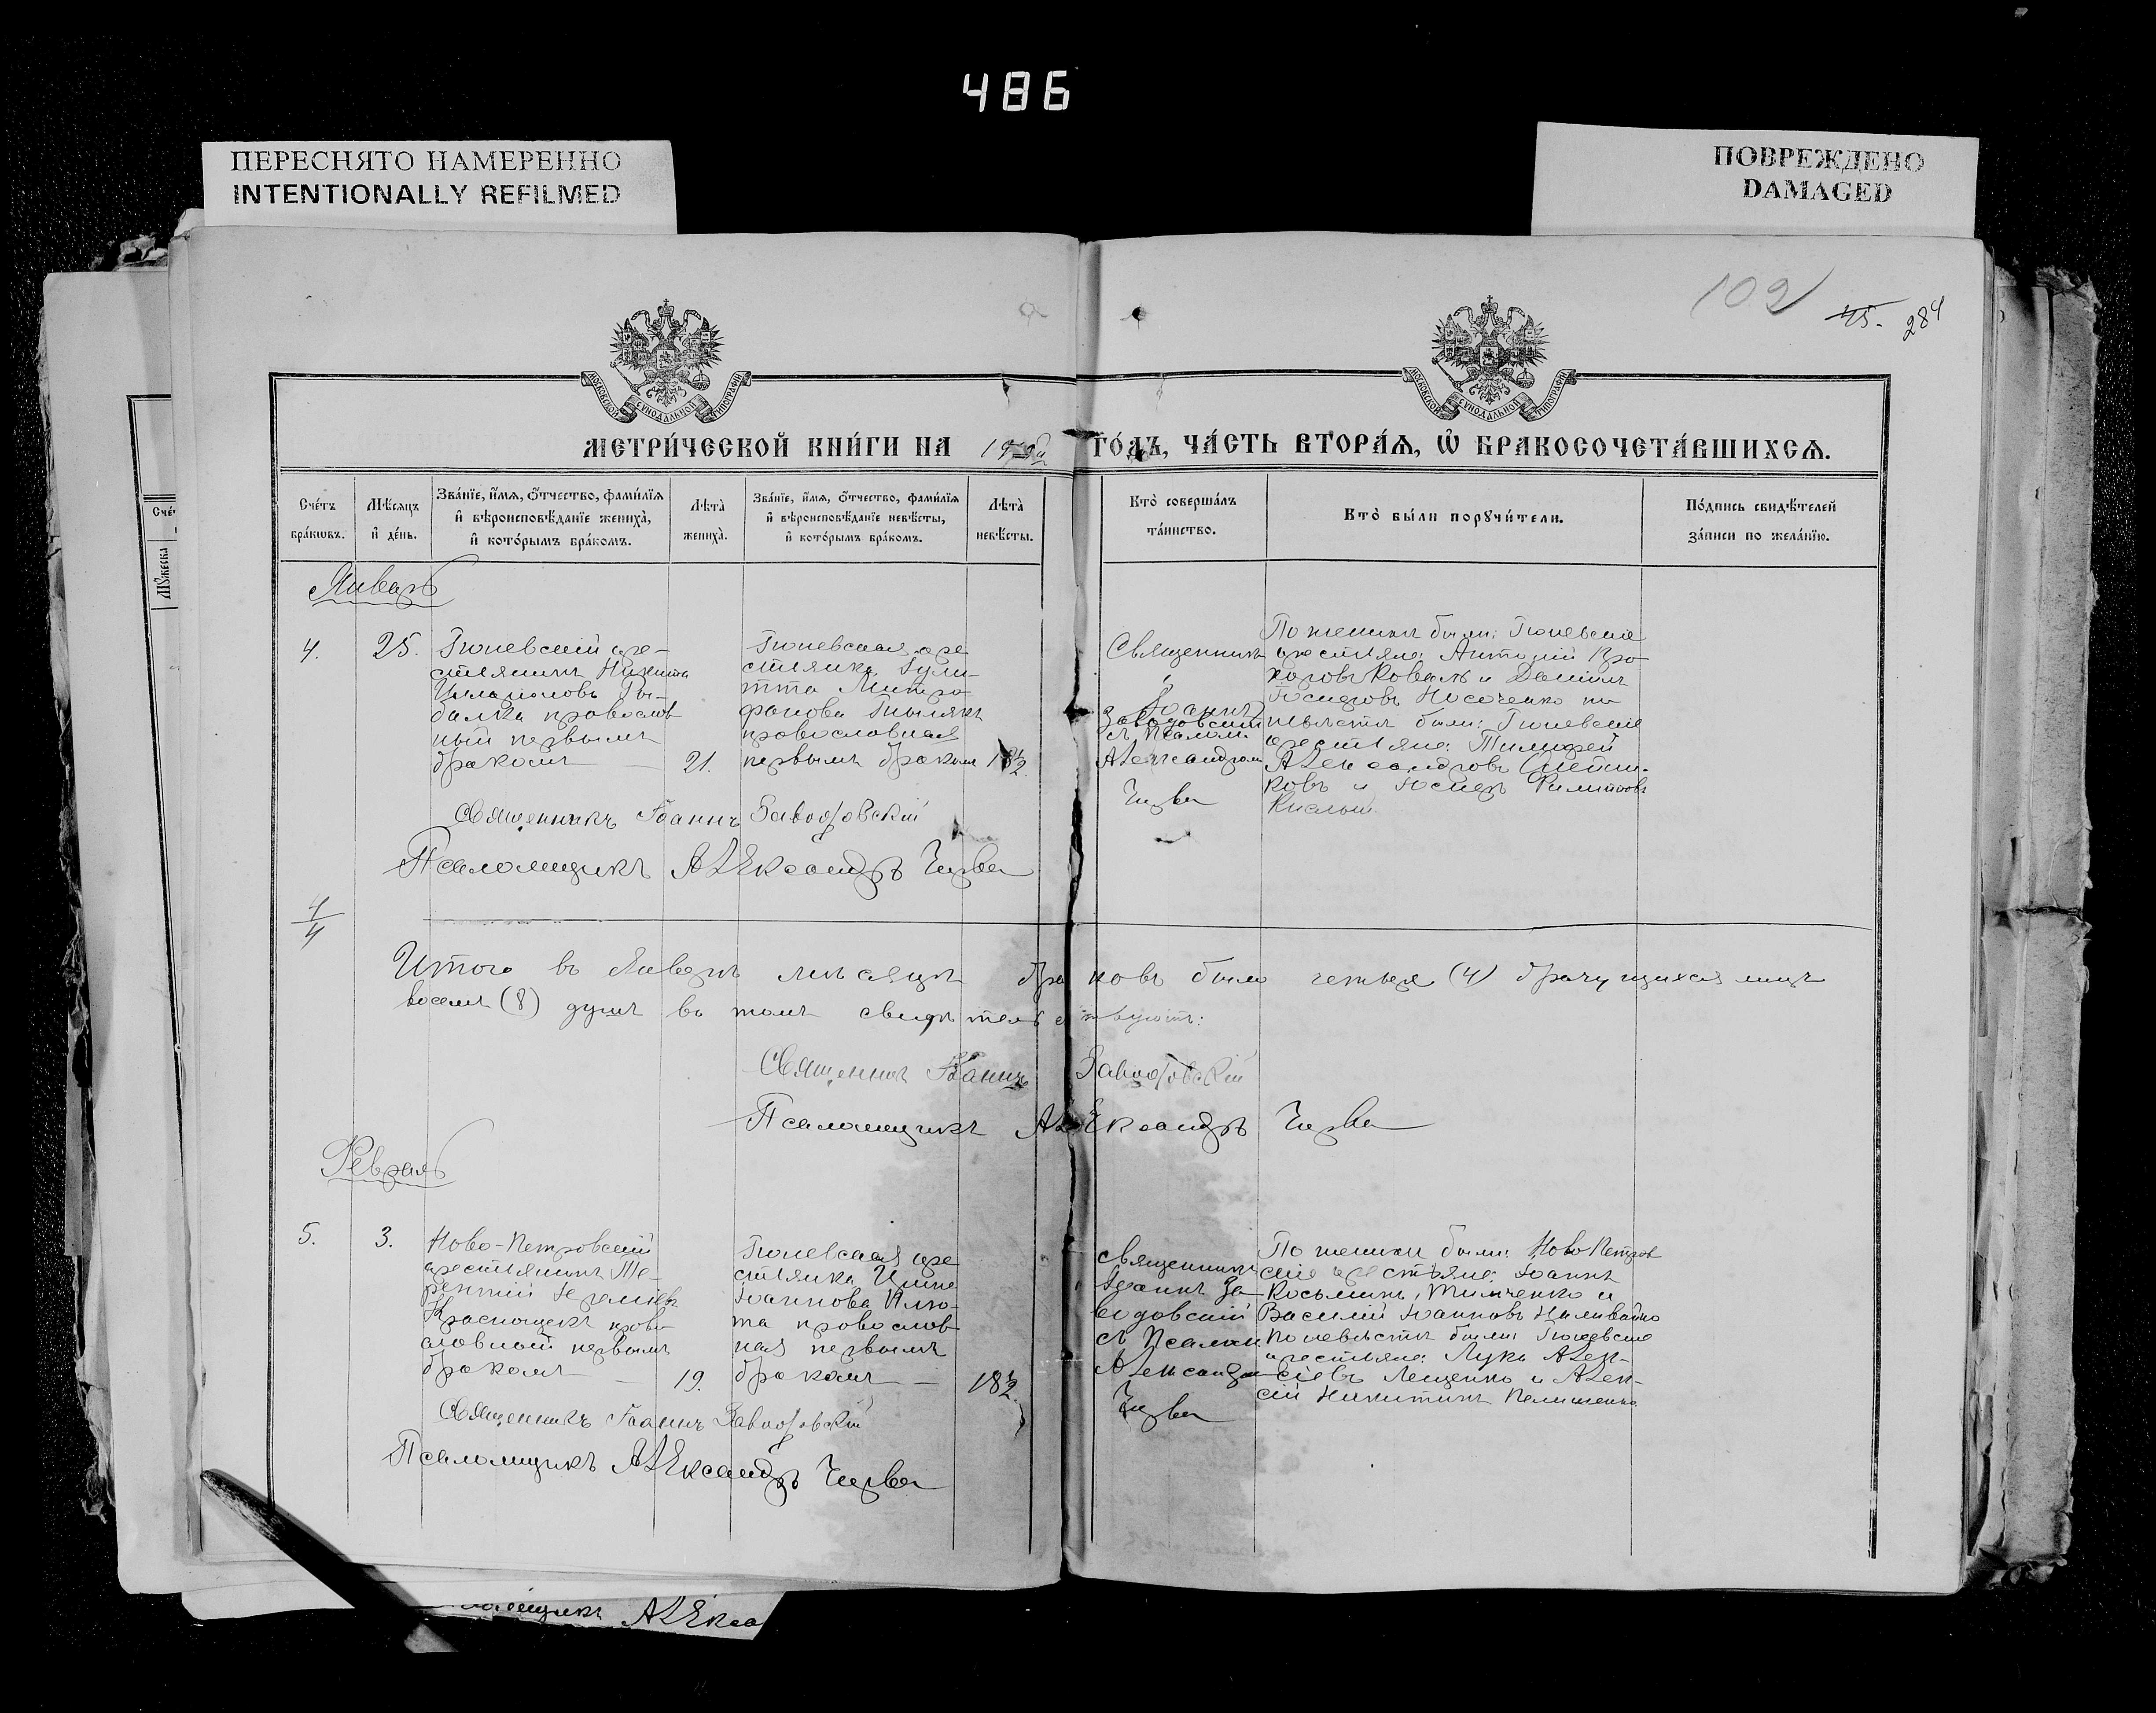 486
ПЕРЕСНЯТО НАМЕРЕННО
INTENTIONALLY REFILMED
ПОВРЕЖДЕНО
DAMAGED
102
45. 284
МОСКОВСКОЙ СѴНОДАЛЬНОЙ ТИПОГРАФІИ
МОСКОВСКОЙ СѴНОДАЛЬНОЙ ТИПОГРАФІИ
МЕТРИ́ЧЕСКОЙ КНИ́ГИ НА 19 ГО́ДЪ, ЧА́СТЬ ВТОРА́Ѧ, Ѡ҆ БРАКОСОЧЕТА́ВШИХСѦ.
Сче́тъ бра́кѡвъ.
Мѣ́сѧцъ и҆ де́нь.
Зва́нїе, и҆́мѧ, ѻ҆́тчество, фами́лїѧ и҆ вѣроисповѣ́данїе жениха̀, и҆ кото́рымъ бра́комъ.
Лѣта̀ жениха̀.
Зва́нїе, и҆́мѧ, ѻ҆́тчество, фами́лїѧ и҆ вѣроисповѣ́данїе невѣ́сты, и҆ кото́рымъ бра́комъ.
Лѣта̀ невѣ́сты.
Кто̀ соверша́лъ та́инство.
Кто̀ бы́ли порꙋчи́тели.
По́дпись свидѣ́телей за́писи по жела́нїю.
Январь
4.
25.
Гюневскій кре-
стьянинъ Никита
православ
ный первымъ
бракомъ
21.
Гюневская кре
стьянка Гули-
тта Митро
фанова
православная
первымъ бракомъ
18½.
Священникъ
Іоаннъ
Заводовскій
съ Псалом.
Александромъ
Чирва
По женихѣ были: Гюневскіе
крестьяне: Антоній Про
хоровъ Коваль и Даніилъ
Носоченко по
невѣстѣ были: Гюневскіе
крестьяне: Тимофей
Александровъ
ковъ и Іосифъ Филиповъ
Кислый
Священникъ Іоаннъ Заводовскій
Псаломщикъ Александръ Чирва
4
4
Итого въ Январѣ мѣсяцѣ браковъ было четыре (4) брачущихся лицъ
восемь (8) душъ въ томъ свидѣтельствуютъ:
Священникъ Іоаннъ Заводовскій
Псаломщикъ Александръ Чирва
Февраль
5.
3.
Ново-Петровскій
крестьянинъ Те-
рентій
Краснощекъ право
славный первымъ
бракомъ
19.
Гюневская кре
стьянка
Іоаннова
та православ
ная первымъ
бракомъ
18½
Священникъ
Іоаннъ За-
водовскій
съ Псалом.
Александромъ
Чирва
По женихѣ были: НовоПетров
скіе крестьяне: Іоаннъ
Косьминъ Тимченко и
Василій Іоанновъ Наливайко
По невѣстѣ были: Гюневскіе
крестьяне: Лука Алек-
сѣевъ Лещенко и Алек-
сій Никитинъ
Священникъ Іоаннъ Заводовскій
Псаломщикъ Александръ Чирва